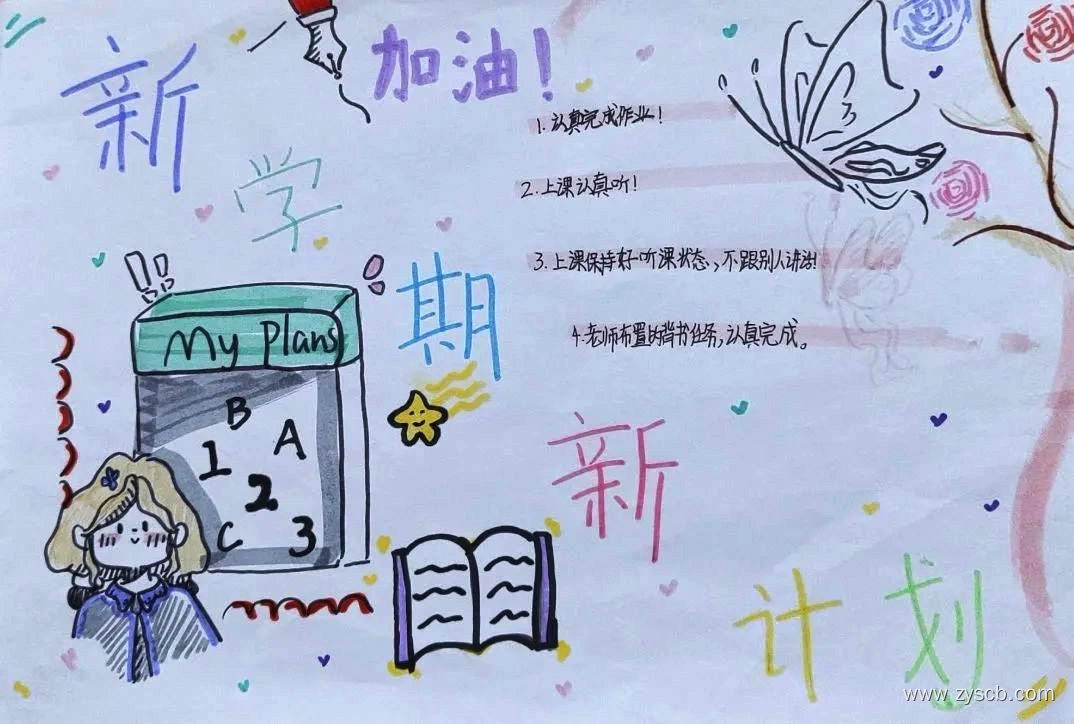 新学期新计划
加油!
1.认真完成作业!
2.上课认真听!
3.上课保持好听课状态,不跟别人讲话!
4.老师布置的背书任务,认真完成。
My Plans
B
1 A
2
C 3
www.zyscb.com